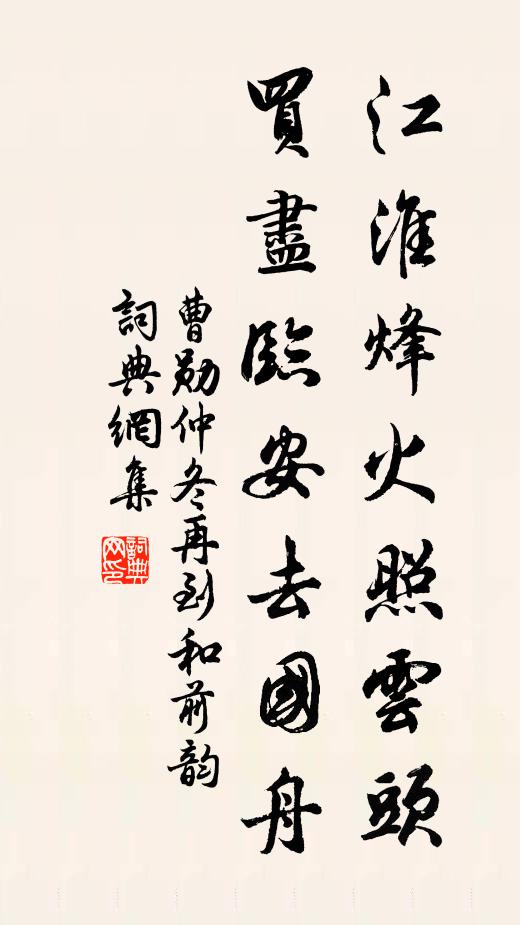 江淮烽火照雲頭
買盡臨安去國舟
曹勛仲冬再到和前韵
詞典網集
詞典网印